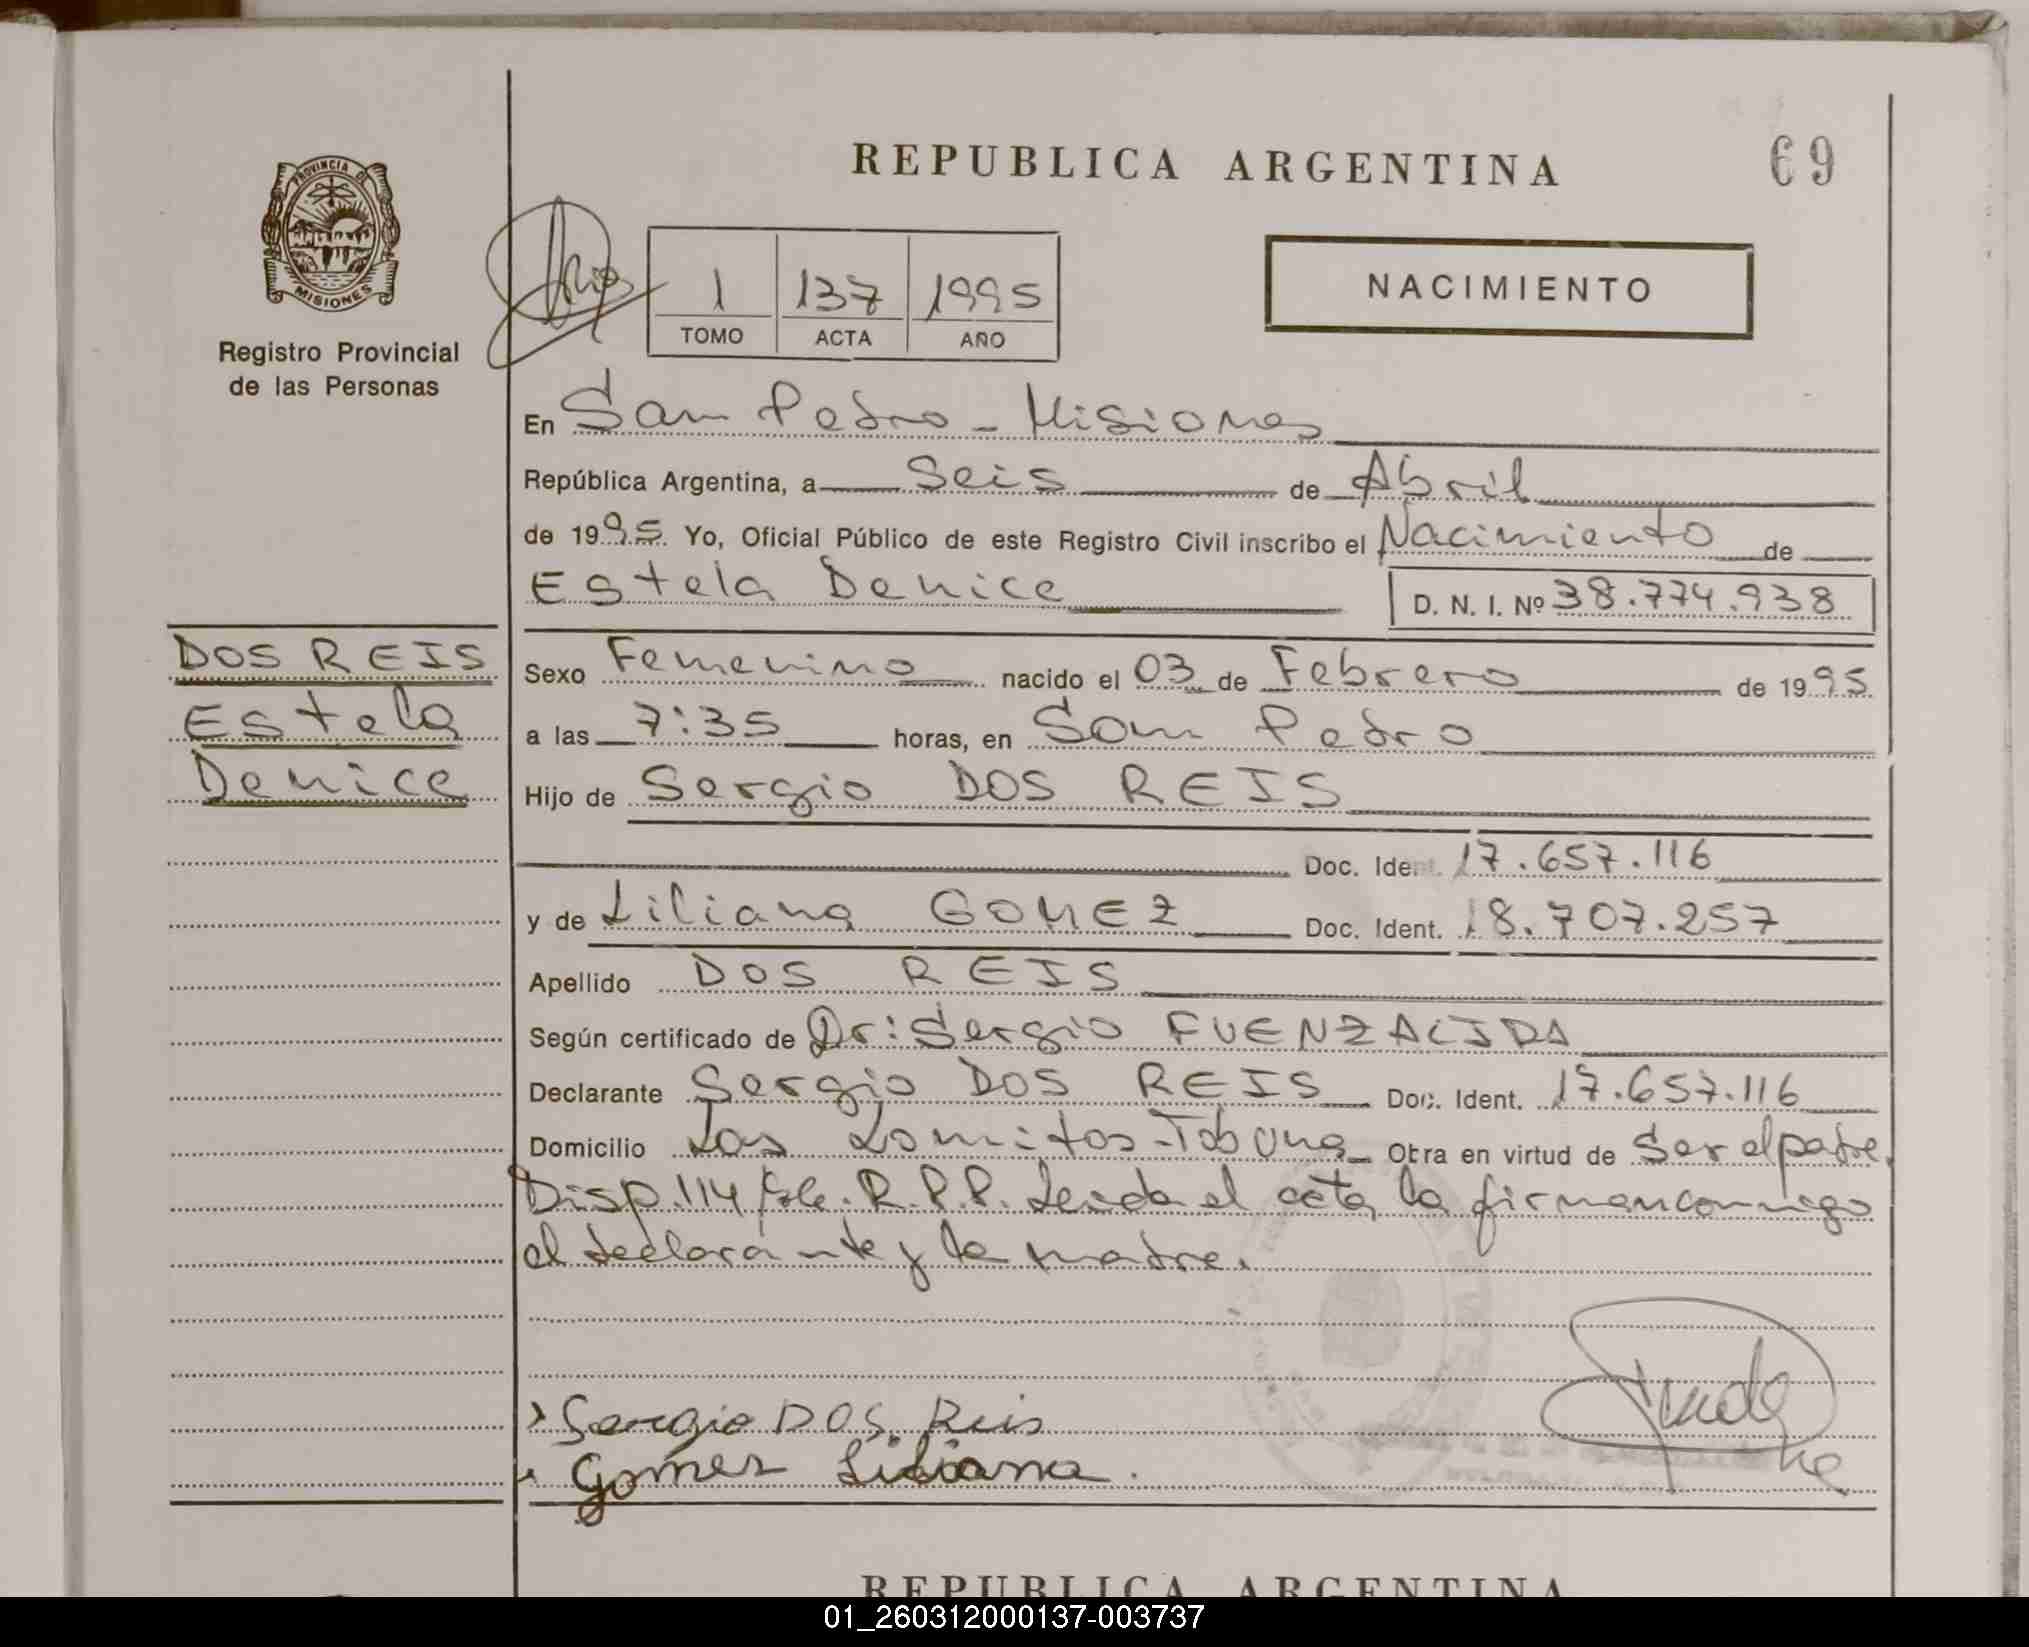 REPUBLICA ARGENTINA
69
PROVINCIA DE
MISIONES
Registro Provincial
de las Personas
1 137 1995
TOMO ACTA AÑO
NACIMIENTO
En San Pedro - Misiones
República Argentina, a Seis de Abril
de 1995. Yo, Oficial Público de este Registro Civil inscribo el Nacimiento de
Estela Denice D. N. I. Nº 38.774.938
DOS REIS
Estela
Denice
Sexo Femenino nacido el 03 de Febrero de 1995
a las 7:35 horas, en San Pedro
Hijo de Sergio DOS REIS
Doc. Ident. 17.657.116
y de Liliana GOMEZ Doc. Ident. 18.707.257
Apellido DOS REIS
Según certificado de Dr: Sergio FUENZALIDA
Declarante Sergio DOS REIS Doc. Ident. 17.657.116
Domicilio Las Lomitas-Tobuna Obra en virtud de Ser el padre.
Disp. 114 R.P.P. Leida el acta, la firman conmigo
el declarante y la madre.
Sergio DOS Reis
Gomez Liliana.
REPUBLICA ARGENTINA
01_260312000137-003737